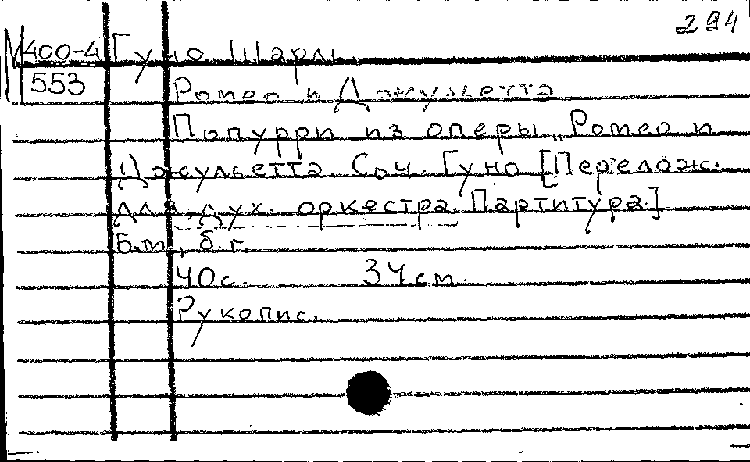 294
М400-4 Гуно Шарль.
553
Ромео и Джульетта
Попурри из оперы „Ромео и
Джульетта. Соч. Гуно [Перелож.
для дух. оркестра. Партитура]
Б.м., б.г.
40с. 34см.
Рукопис.